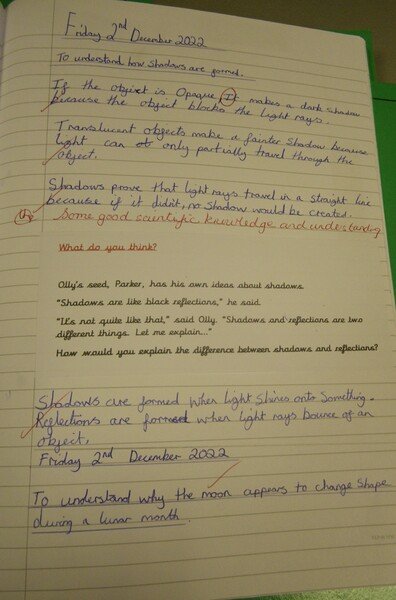 Friday 2nd December 2022
To understand how shadows are formed.
If the object is Opaque, It makes a dark shadow
because the object blocks the light rays.
Translucent objects make a fainter shadow because
light can only partially travel through the
object.
Shadows prove that light rays travel in a straight line
because if it didn't, no shadow would be created.
Some good scientific knowledge and understanding
What do you think?
Olly's seed, Parker, has his own ideas about shadows.
"Shadows are like black reflections," he said.
"It's not quite like that," said Olly. "Shadows and reflections are two
different things. Let me explain..."
How would you explain the difference between shadows and reflections?
Shadows are formed when light shines onto something.
Reflections are formed when light rays bounce of an
object.
Friday 2nd December 2022
To understand why the moon appears to change shape
during a lunar month.